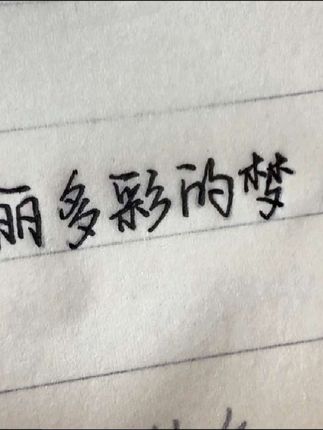 丽多彩的梦